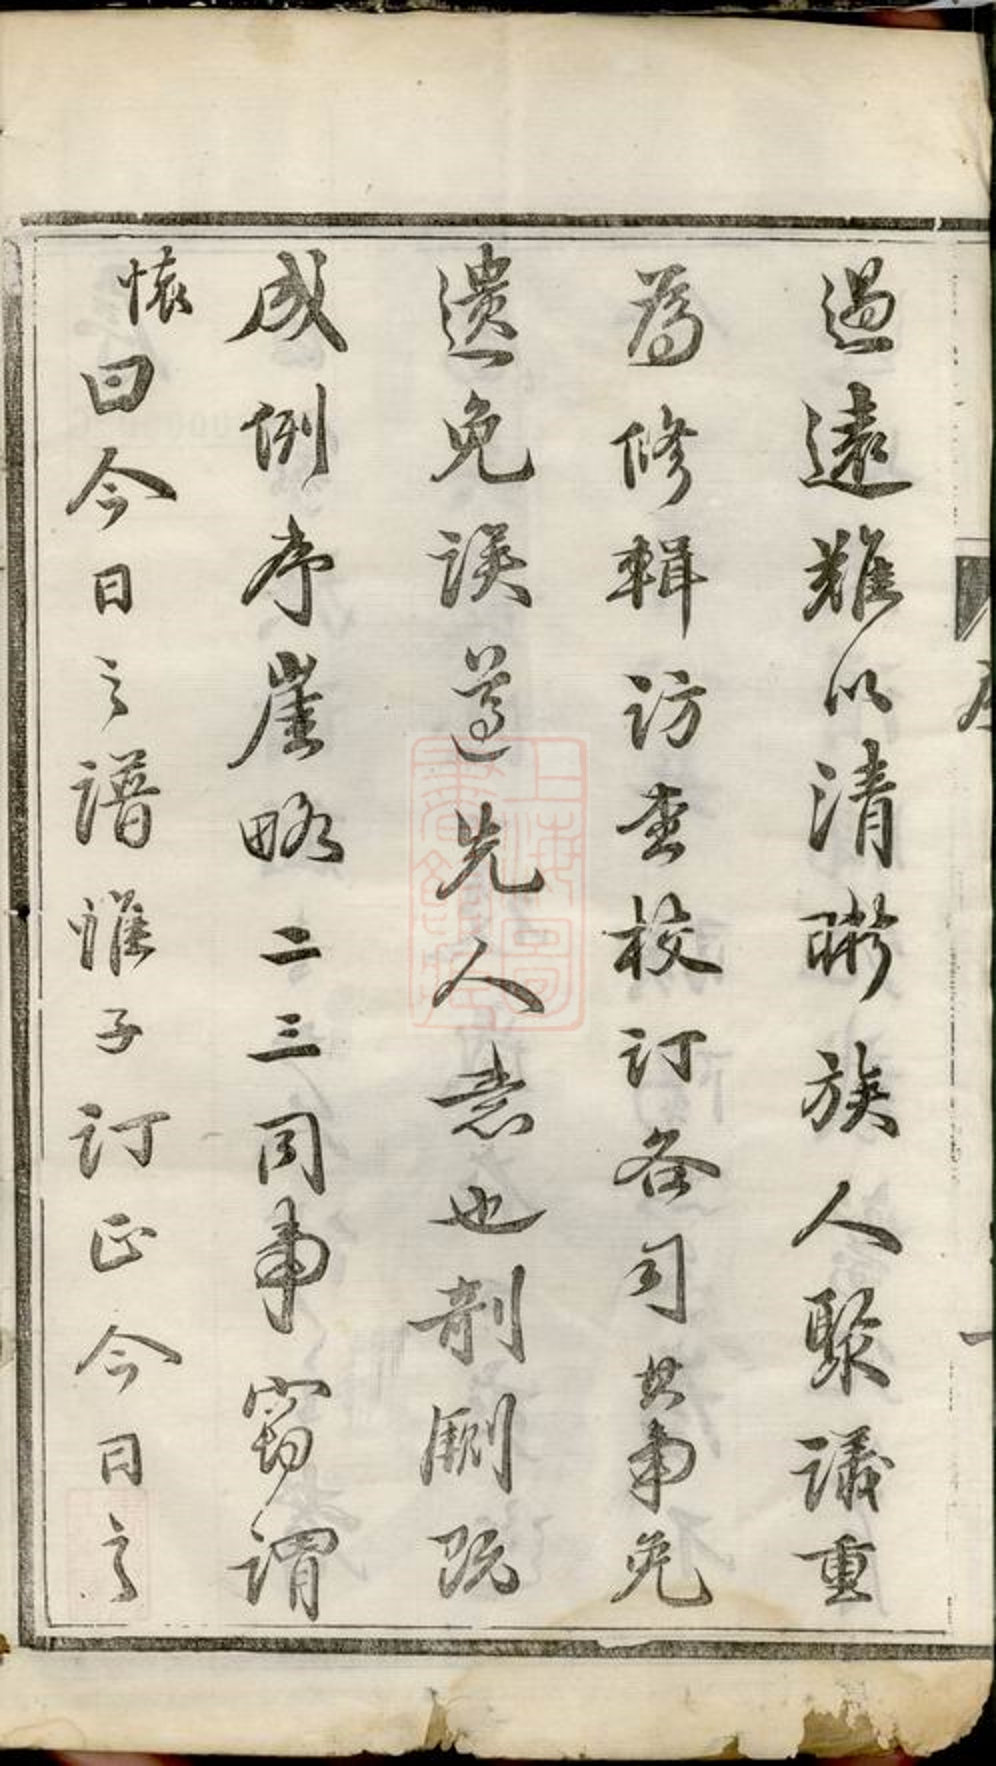 過遠難以清晰族人聚議重
為修輯訪查校訂各司其事免
遺免誤遵先人志也剞劂既
成例序崖略二三同事竊謂
懷曰今日之譜惟子訂正今日之
序